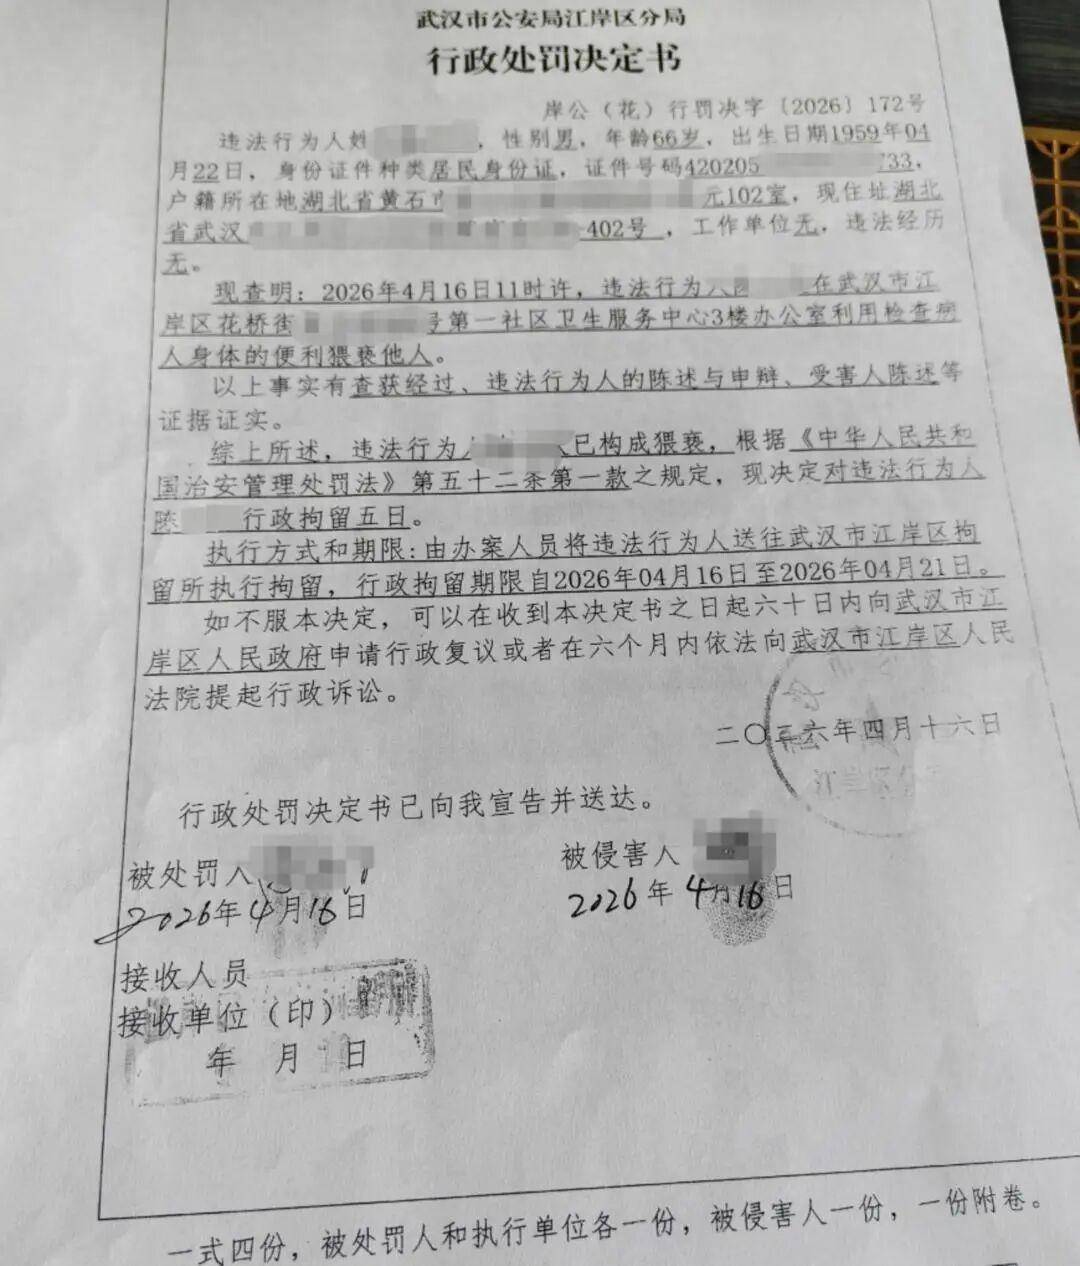 武汉市公安局江岸区分局
行政处罚决定书
岸公（花）行罚决字〔2026〕172号
违法行为人姓，性别男，年龄66岁，出生日期1959年04
月22日，身份证件种类居民身份证，证件号码420205 733，
户籍所在地湖北省黄石 元102室，现住址湖北
省武汉 402号，工作单位无，违法经历
无。
现查明：2026年4月16日11时许，违法行为人 在武汉市江
岸区花桥街 号第一社区卫生服务中心3楼办公室利用检查病
人身体的便利猥亵他人。
以上事实有查获经过、违法行为人的陈述与申辩、受害人陈述等
证据证实。
综上所述，违法行为人 已构成猥亵，根据《中华人民共和
国治安管理处罚法》第五十二条第一款之规定，现决定对违法行为人
陈 行政拘留五日。
执行方式和期限：由办案人员将违法行为人送往武汉市江岸区拘
留所执行拘留，行政拘留期限自2026年04月16日至2026年04月21日。
如不服本决定，可以在收到本决定书之日起六十日内向武汉市江
岸区人民政府申请行政复议或者在六个月内依法向武汉市江岸区人民
法院提起行政诉讼。
二〇二六年四月十六日
江岸区分
行政处罚决定书已向我宣告并送达。
被处罚人 被侵害人
2026年4月16日 2026年4月16日
接收人员
接收单位（印）
年 月 日
一式四份，被处罚人和执行单位各一份，被侵害人一份，一份附卷。